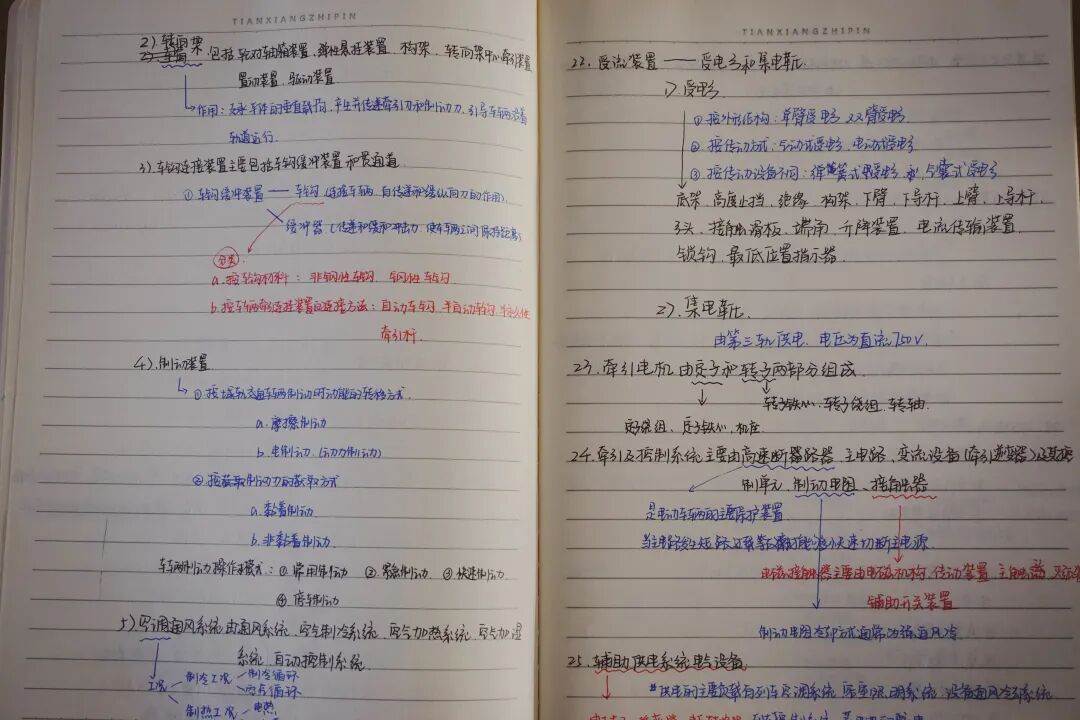 TIANXIANGZHIPIN
2) 转向架 包括轮对轴箱装置、弹性悬挂装置、构架、转向架中心牵引装置
置动装置、驱动装置
作用：支承车体的垂直载荷、产生并传递牵引力和制动力、引导车辆沿着
轨道运行.
3) 车钩连接装置主要包括车钩缓冲装置和贯通道
① 车钩缓冲装置 —— 车钩 (连接车辆、自传递和缓纵向力的作用).
缓冲器 (传递和缓和冲击力、使车辆之间保持距离)
分类.
a. 按车钩材料：非钢性车钩、钢性车钩
b. 按车辆牵引连接装置的连接方法：自动车钩、半自动车钩、半永久性
牵引杆
4). 制动装置
① 按城轨交通车辆制动时动能的转移方式.
a. 摩擦制动
b. 电制动 (动力制动)
② 按获取制动力的获取方式
a. 黏着制动
b. 非黏着制动.
车辆制动操作模式：① 常用制动 ② 紧急制动 ③ 快速制动.
④ 停车制动
5) 空调通风系统由通风系统、空气制冷系统、空气加热系统、空气加湿
系统、自动控制系统.
工况 制冷工况 制冷循环
空气循环
制热工况 电热
TIANXIANGZHIPIN
22. 受流装置 —— 受电弓和集电靴.
1) 受电弓
① 按外形结构：单臂受电弓、双臂受电弓.
② 按传动方式：气动式受电弓、电动式受电弓
③ 按传动设备不同：弹簧式受电弓、气囊式受电弓
底架、高度止挡、绝缘、构架、下臂、下导杆、上臂、上导杆.
弓头、接触滑板、端角、升降装置、电流传输装置、
锁钩、最低位置指示器.
2). 集电靴.
由第三轨供电、电压为直流750V.
23. 牵引电机由定子和转子两部分组成.
转子铁心、转子绕组、转轴.
定子绕组、定子铁心、机座.
24. 牵引及控制系统主要由高速断路器、主电路、变流设备(牵引逆变器)及其控
制单元、制动电阻、接触器
是电动车辆的主要保护装置
当主电路发生短路、过载等故障时能够快速切断主电源.
电磁接触器主要由电磁机构、传动装置、主触头、灭弧
辅助开关装置
制动电阻冷却方式通常为强迫风冷.
25. 辅助供电系统电气设备
#供电的主要负载有列车空调系统、客室照明系统、设备通风冷却系统